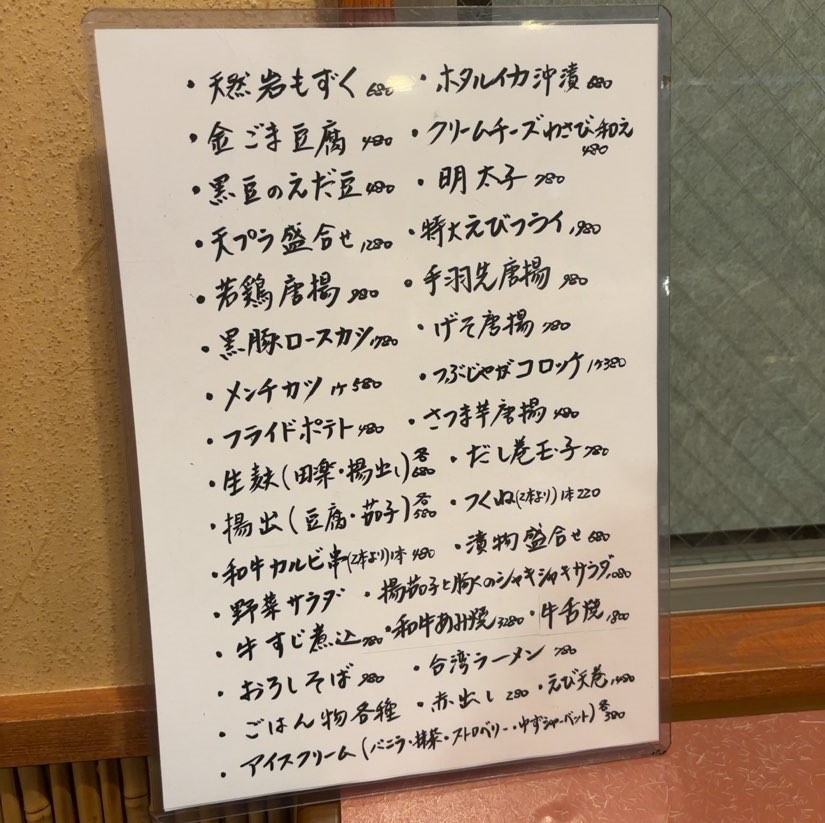 ・天然岩もずく 680 ・ホタルイカ沖漬 680
・金ごま豆腐 480 ・クリームチーズわさび和え 480
・黒豆のえだ豆 480 ・明太子 780
・天プラ盛合せ 1280 ・特大えびフライ 1980
・若鶏唐揚 980 ・手羽先唐揚 980
・黒豚ロースカツ 1780 ・げそ唐揚 780
・メンチカツ 1ケ580 ・つぶじゃがコロッケ 1ケ380
・フライドポテト 480 ・さつま芋唐揚 480
・生麸(田楽・揚出し)各680 ・だし巻玉子 780
・揚出(豆腐・茄子)各580 ・つくね(2本より)1本220
・和牛カルビ串(2本より)1本 480 ・漬物盛合せ 680
・野菜サラダ ・揚茄子と豚のシャキシャキサラダ 1080
・牛すじ煮込 780 ・和牛あみ焼 3280 ・牛舌焼 1800
・おろしそば 980 ・台湾ラーメン 780
・ごはん物各種 ・赤出し 280 ・えび天巻 1480
・アイスクリーム(バニラ・抹茶・ストロベリー・ゆずシャーベット)各380